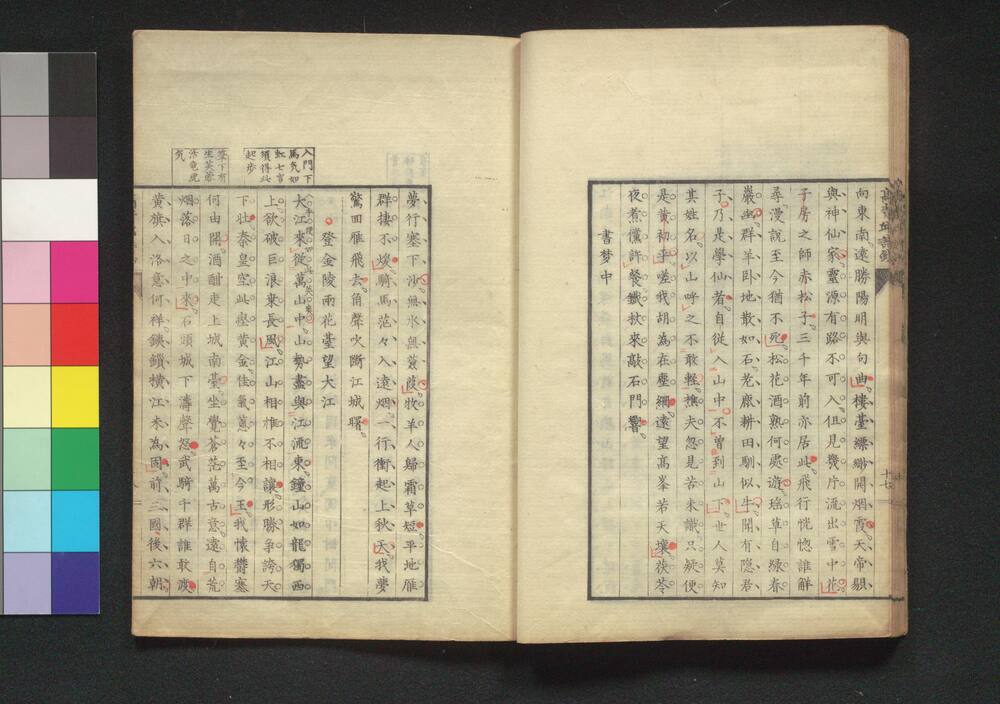 向東南遠勝陽明與句曲樓臺縹緲開烟霞天帝賜
與神仙家靈源有路不可入但見幾片流出雪中花
子房之師赤松子三千年前亦居此飛行恍惚誰解
尋漫説至今猶不死松花酒熟何處遊瑶草自綠春
巖幽群羊卧地散如石老鹿耕田馴似牛聞有隱君
子乃是學仙者自從入山中不曽到山下世人莫知
其姓名以山呼之不敢輕樵夫忽見苦未識只疑便
是黄初平嗟我胡為在塵網遠望高峯若天壤茯苓
夜煮儻許餐鐵杖來敲石門響
書夢中
夢行塞下沙無水無葭葭牧羊人歸霜草短平地雁
群棲不煖騎馬茫々入遠烟一行衝起上秋天我夢
驚回雁飛去角聲吹斷江城曙
登金陵雨花臺望大江
大江來從萬山中山勢盡與江流東鐘山如龍獨西
上欲破巨浪乗長風江山相雄不相讓形勝争誇天
下壮秦皇空此壓黄金佳氣葱々至今王我懐鬱塞
何由開酒酣走上城南臺坐覺蒼茫萬古意遠自荒
烟落日之中來石頭城下濤聲怒武騎千群誰敢渡
黄旗入洛竟何祥鐵鎖横江未為固前三國後六朝
入門下
馬気如
虹七言
須得此
起歩
十七